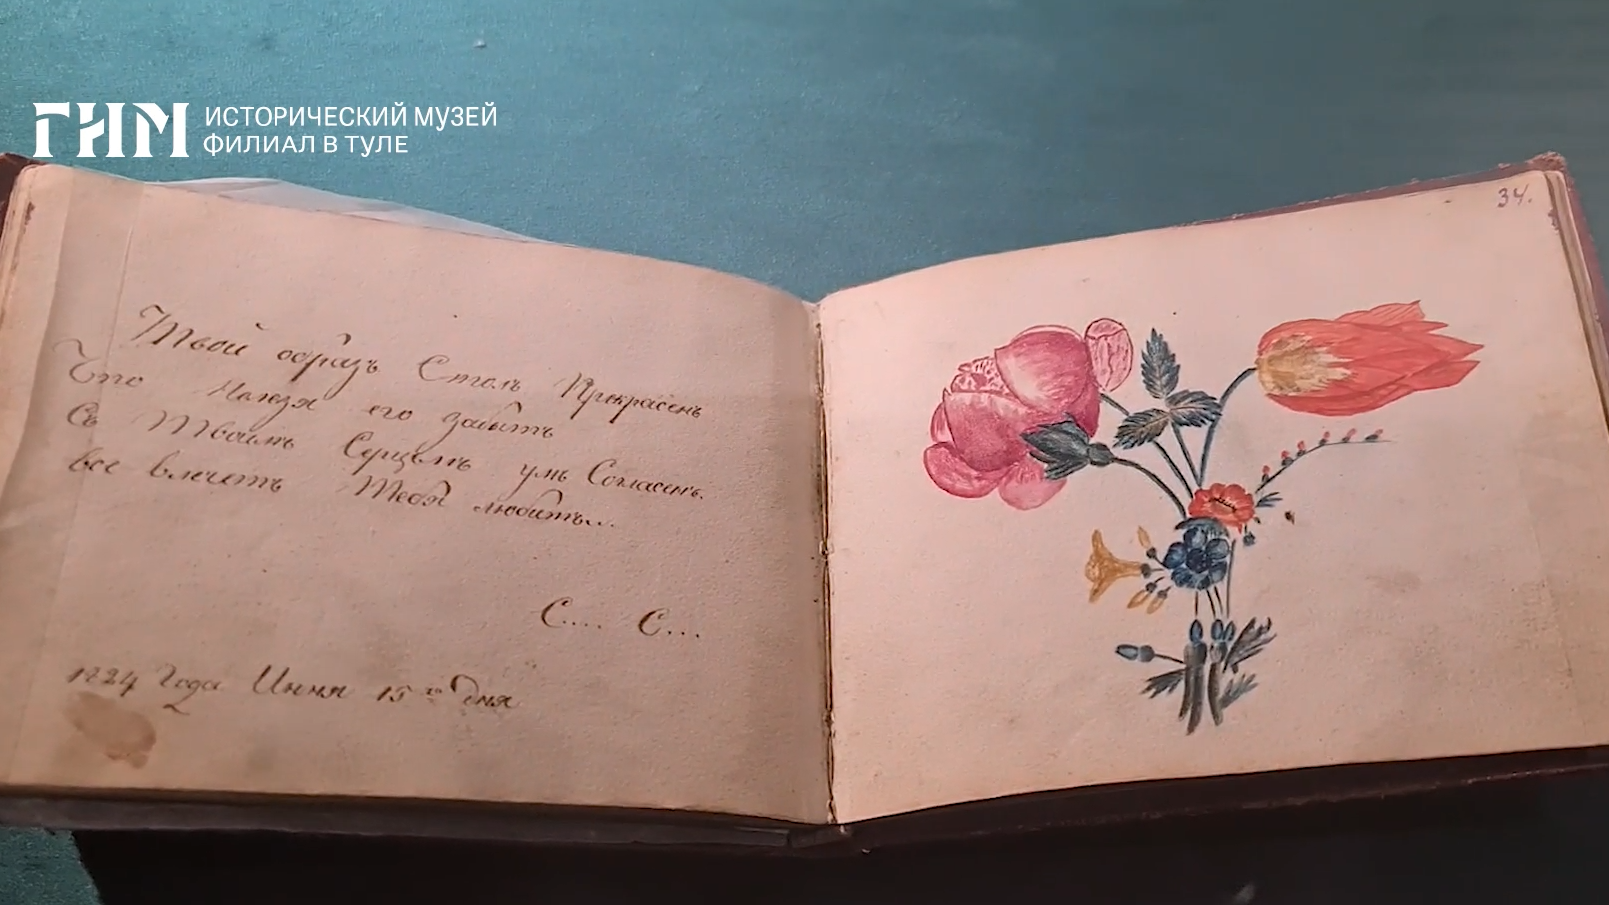 ГИМ ИСТОРИЧЕСКИЙ МУЗЕЙ
ФИЛИАЛ В ТУЛЕ
34.
Твой образъ Столь Прекрасенъ
Что Нльзя его забыть
Съ Твоимъ Серцемъ умъ Согласенъ.
все влечетъ Тебя любить...
С.... С...
1824 Года Июня 15го дня